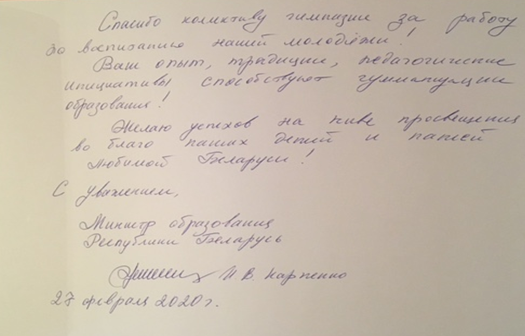 Спасибо коллективу гимназии за работу
по воспитанию нашей молодёжи!
Ваш опыт, традиции, педагогические
инициативы способствуют гуманизации
образования!
Желаю успехов на ниве просвещения
во благо наших детей и нашей
любимой Беларуси!
С уважением,
Министр образования
Республики Беларусь
И.В. Карпенко
27 февраля 2020 г.